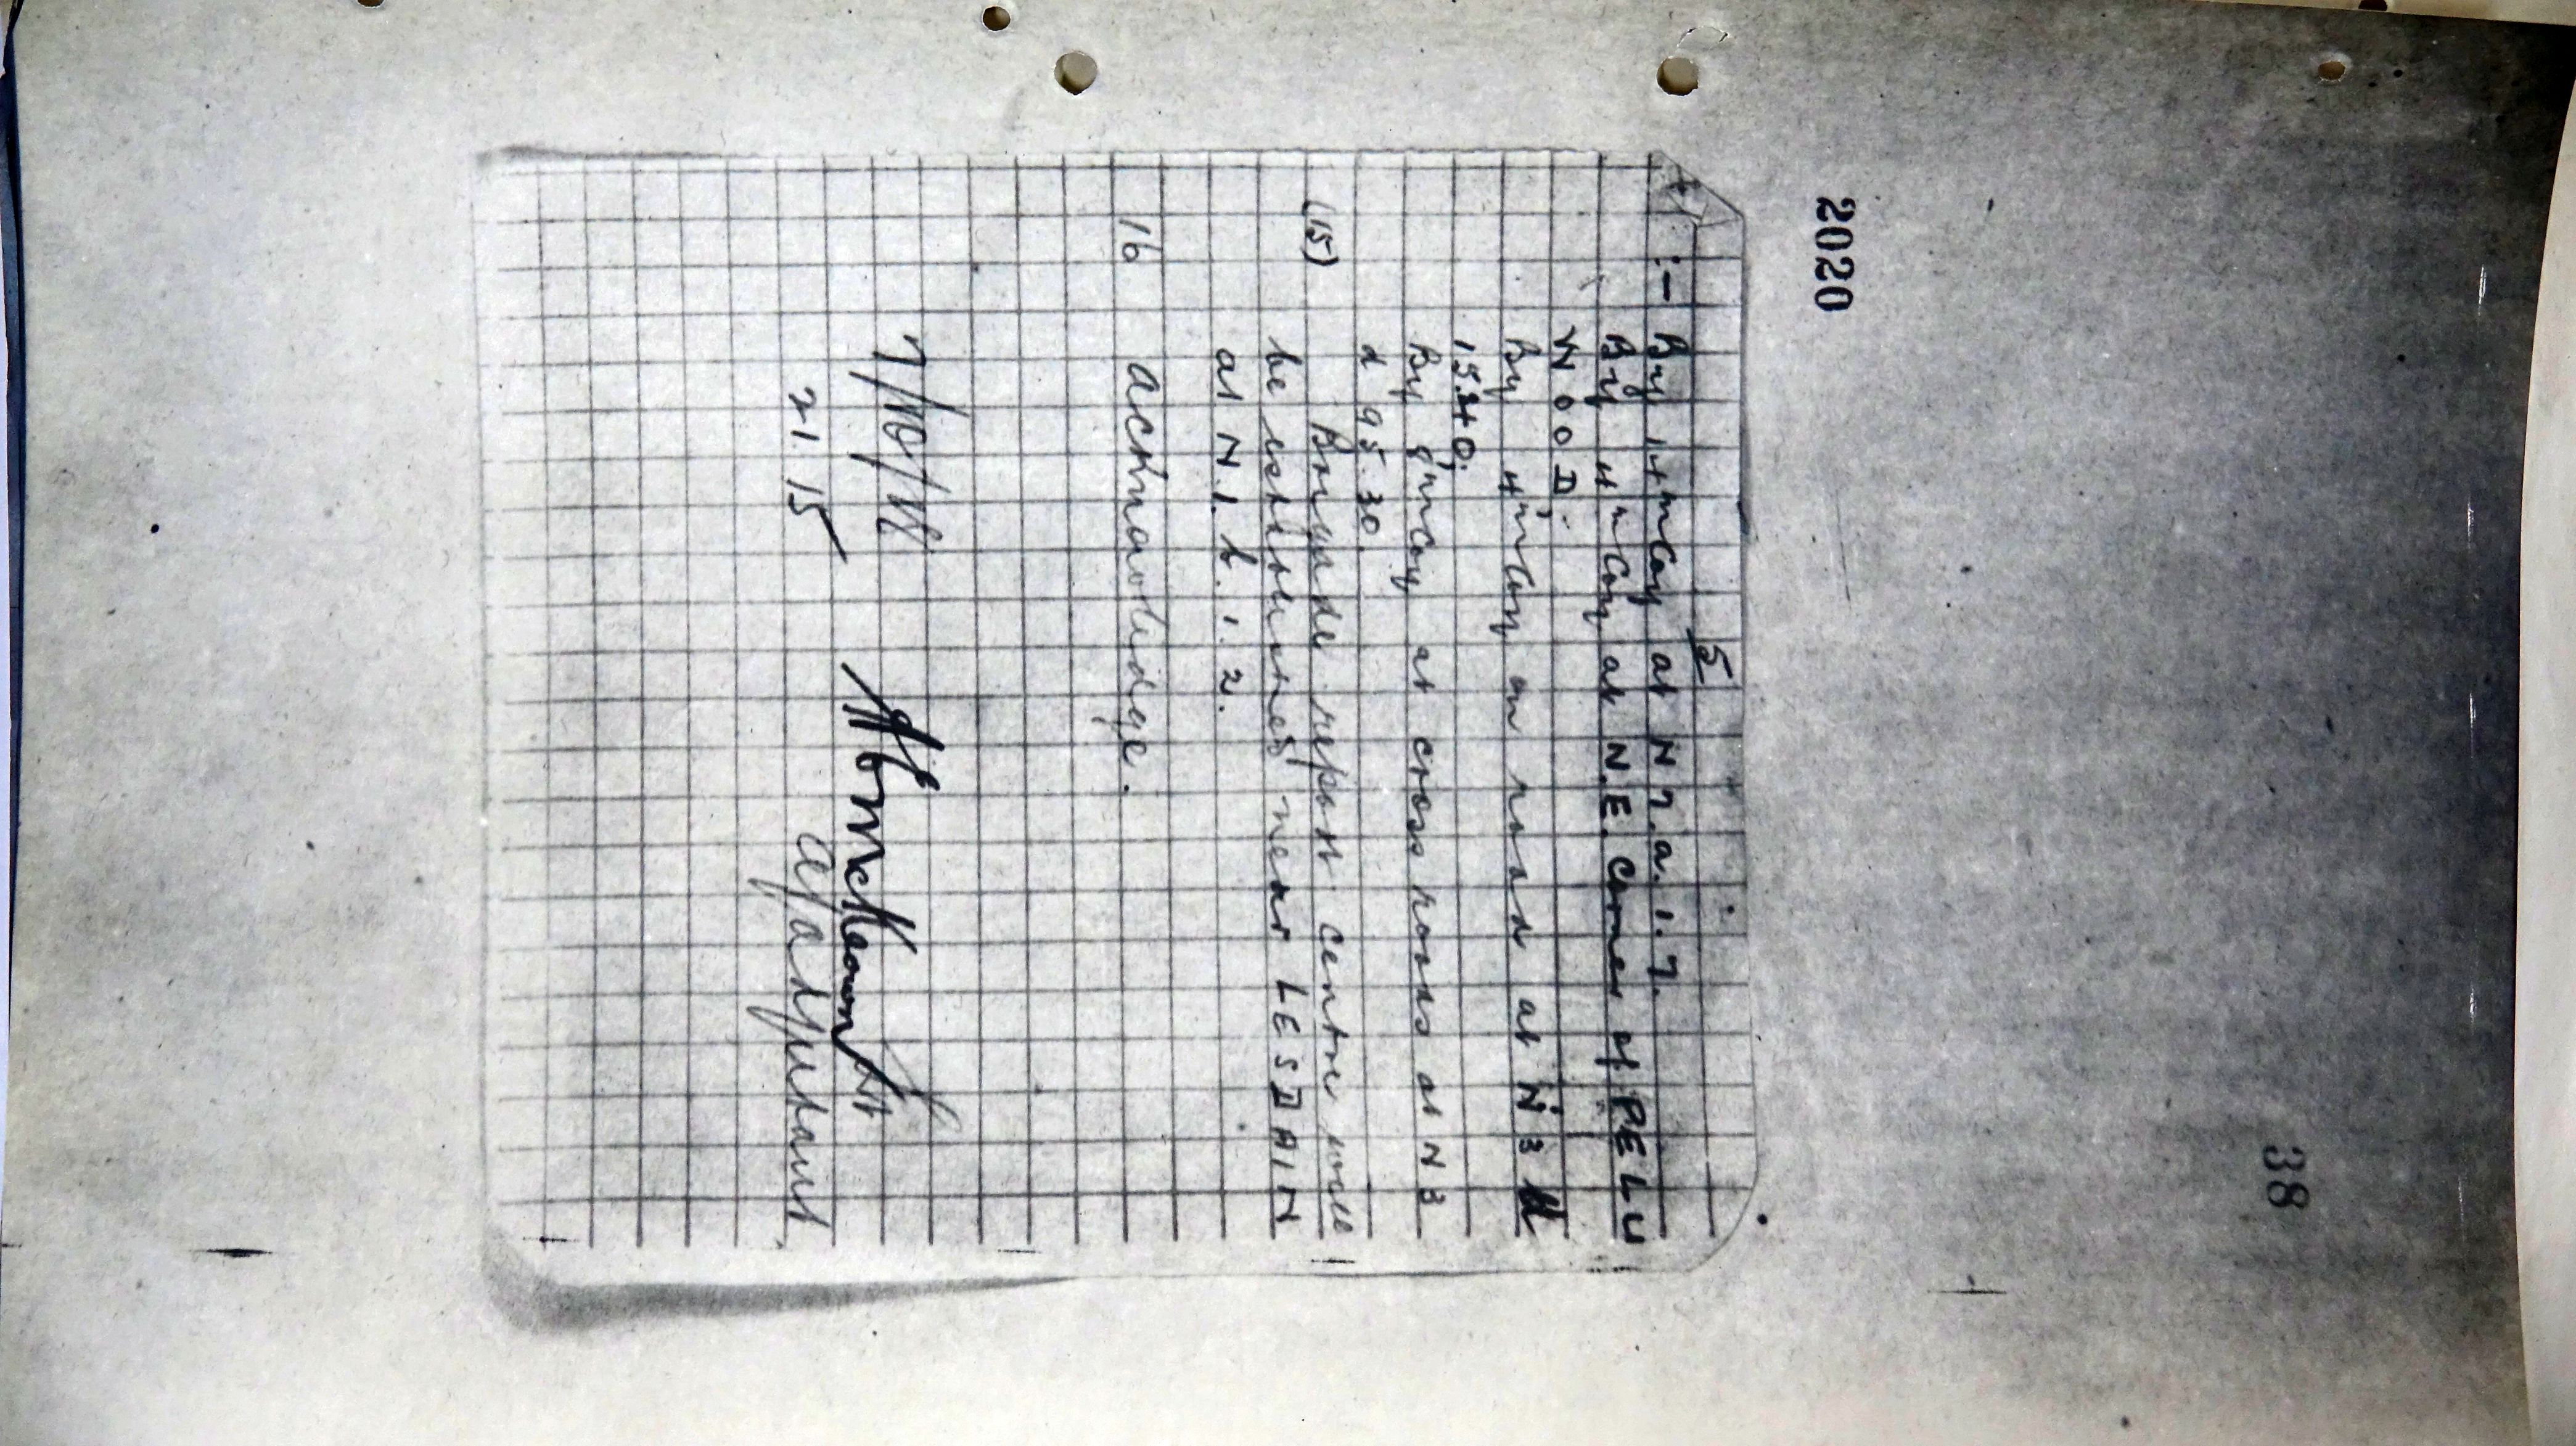 2020
38
5
:- By 1+ "Coy at N 7. a. 1. 7.
By 4 "Coy at N.E. Corner of PELU
WOOD.
By 4 "Coy on road at N 3 d
15.40.
By "Coy at cross roads at N 3
d 95.30.
(15) Brigade report centre will
be established near LESDAIN
at N.1.b.1.2.
16 Acknowledge.
7/10/18
21.15
Adjutant